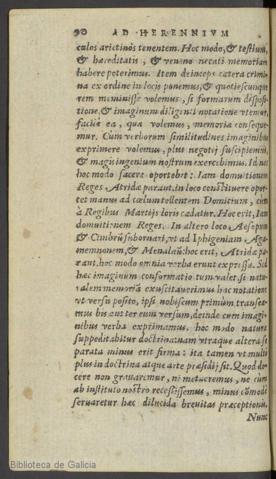 90 AD HERENNIVM
culos arietinos tenentem. Hoc modo, & testium,
& hæreditatis, & veneno necati memoriam
habere poterimus. Item deinceps cætera crimi-
na ex ordine in locis ponemus, & quotiescunque
rem meminisse volemus, si formarum disposi-
tione, & imaginum diligenti notatione vtemur,
facilè ea, quæ volemus, memoria consequē-
mur. Cum verborum similitudines imaginibus
exprimere volemus, plus negotij suscipiemus,
& magis ingenium nostrum exercebimus. Id nos
hoc modo facere oportebit: Iam domuitionem
Reges Atridæ parant. in loco constituere opor-
tet manus ad cœlum tollentem Domitium, cum
à Regibus Martijs loris cædatur. Hoc erit, Iam
domuitionem Reges. In altero loco Aesopum
& Cimbrū subornari, vt ad Iphigeniam Aga-
memnonem, & Menelaū: hoc erit, Atridæ pa-
rant. hoc modo omnia verba erunt expressa. Sed
hæc imaginum conformatio tum valet, si natu-
ralem memoriā exuscitauerimus hac notatione
vt versu posito, ipsi nobiscum primum transea-
mus bis aut ter eum versum, deinde cum imagi-
nibus verba exprimamus. hoc modo natura
suppeditabitur doctrina. nam vtraque altera se-
parata minus erit firma: ita tamen vt multò
plus in doctrina atque arte præsidij sit. Quod do-
cere non grauaremur, ni metueremus, ne cum
ab instituto nostro recessissemus, minus cōmodè
seruaretur hæc dilucida breuitas præceptionis.
Nunc
Biblioteca de Galicia